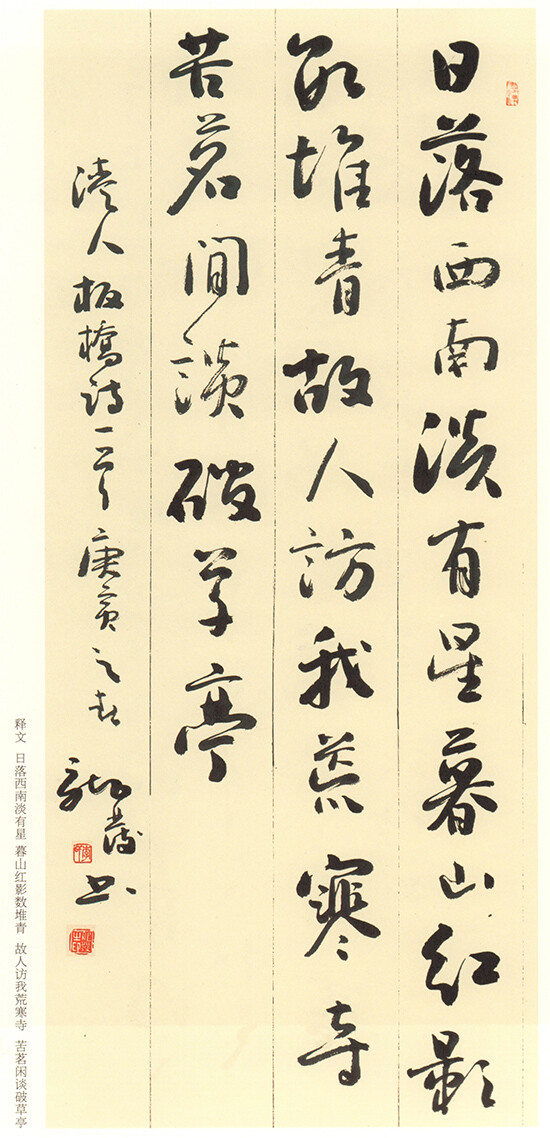 日落西南淡有星暮山红影
数堆青故人訪我荒寒寺
苦茗閒談破草亭
清人板橋詩一首庚寅之春
书
释文 日落西南淡有星 暮山红影数堆青 故人访我荒寒寺 苦茗闲谈破草亭